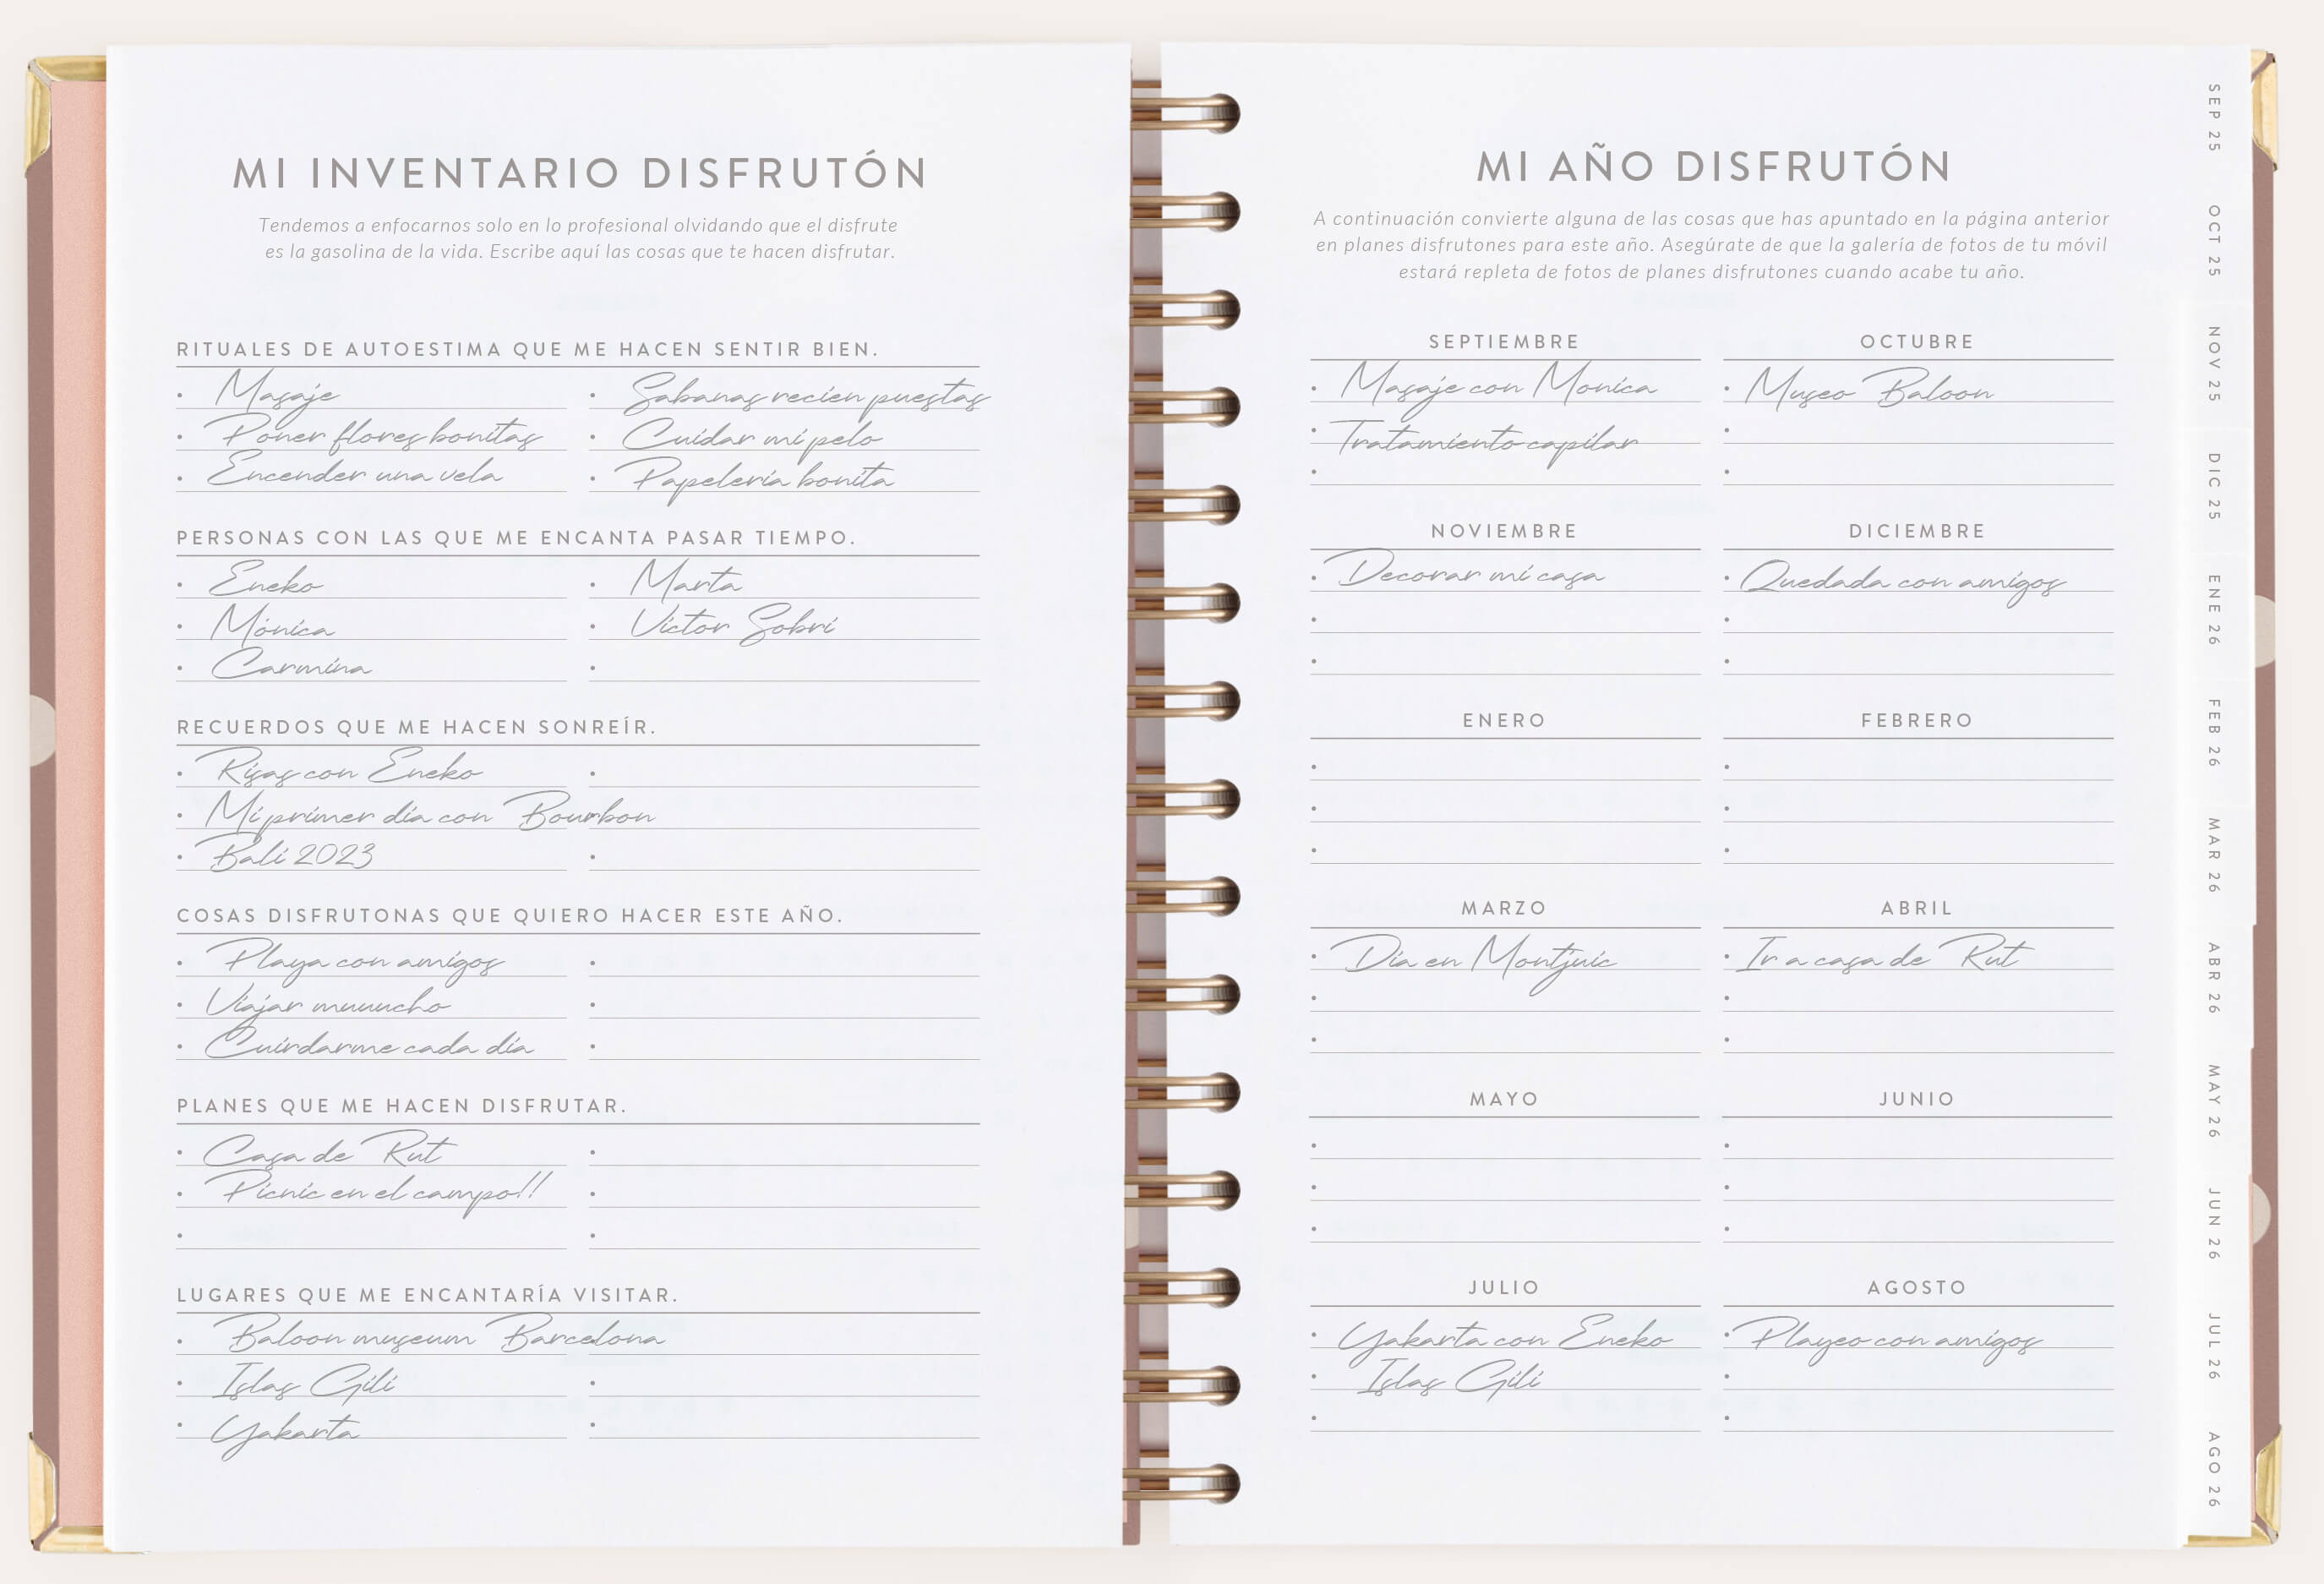 MI INVENTARIO DISFRUTÓN
Tendemos a enfocarnos solo en lo profesional olvidando que el disfrute
es la gasolina de la vida. Escribe aquí las cosas que te hacen disfrutar.
RITUALES DE AUTOESTIMA QUE ME HACEN SENTIR BIEN.
• Masaje
• Sabanas recien puestas
• Poner flores bonitas
• Cuidar mi pelo
• Encender una vela
• Papelería bonita
PERSONAS CON LAS QUE ME ENCANTA PASAR TIEMPO.
• Eneko
• Marta
• Mónica
• Victor Sobri
• Carmina
•
RECUERDOS QUE ME HACEN SONREÍR.
• Risas con Eneko
•
• Mi primer día con Bourbon
• Bali 2023
•
COSAS DISFRUTONAS QUE QUIERO HACER ESTE AÑO.
• Playa con amigos
•
• Viajar muuucho
•
• Cuirdarme cada día
•
PLANES QUE ME HACEN DISFRUTAR.
• Casa de Rut
•
• Picnic en el campo!!
•
•
•
LUGARES QUE ME ENCANTARÍA VISITAR.
• Baloon museum Barcelona
• Islas Gili
•
• Yakarta
•
MI AÑO DISFRUTÓN
A continuación convierte alguna de las cosas que has apuntado en la página anterior
en planes disfrutones para este año. Asegúrate de que la galería de fotos de tu móvil
estará repleta de fotos de planes disfrutones cuando acabe tu año.
SEPTIEMBRE
• Masaje con Monica
• Tratamiento capilar
•
OCTUBRE
• Museo Baloon
•
•
NOVIEMBRE
• Decorar mi casa
•
•
DICIEMBRE
• Quedada con amigos
•
•
ENERO
•
•
•
FEBRERO
•
•
•
MARZO
• Día en Montjuic
•
•
ABRIL
• Ir a casa de Rut
•
•
MAYO
•
•
•
JUNIO
•
•
•
JULIO
• Yakarta con Eneko
• Islas Gili
•
AGOSTO
• Playeo con amigos
•
•
SEP 25
OCT 25
NOV 25
DIC 25
ENE 26
FEB 26
MAR 26
ABR 26
MAY 26
JUN 26
JUL 26
AGO 26